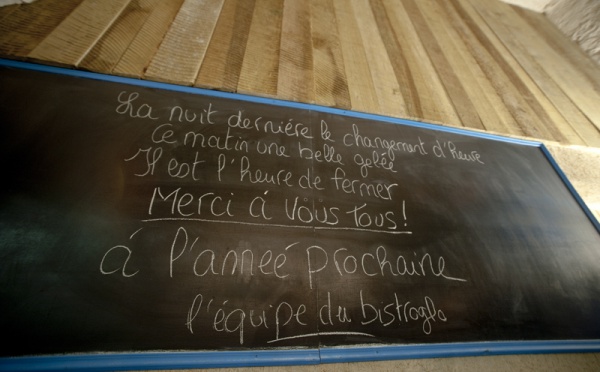 La nuit derniére le changement d'heure
Ce matin une belle gelée
Il est l'heure de fermer
Merci á Vous Tous!
á l'anneé prochaine
l'équipe du bistroglo